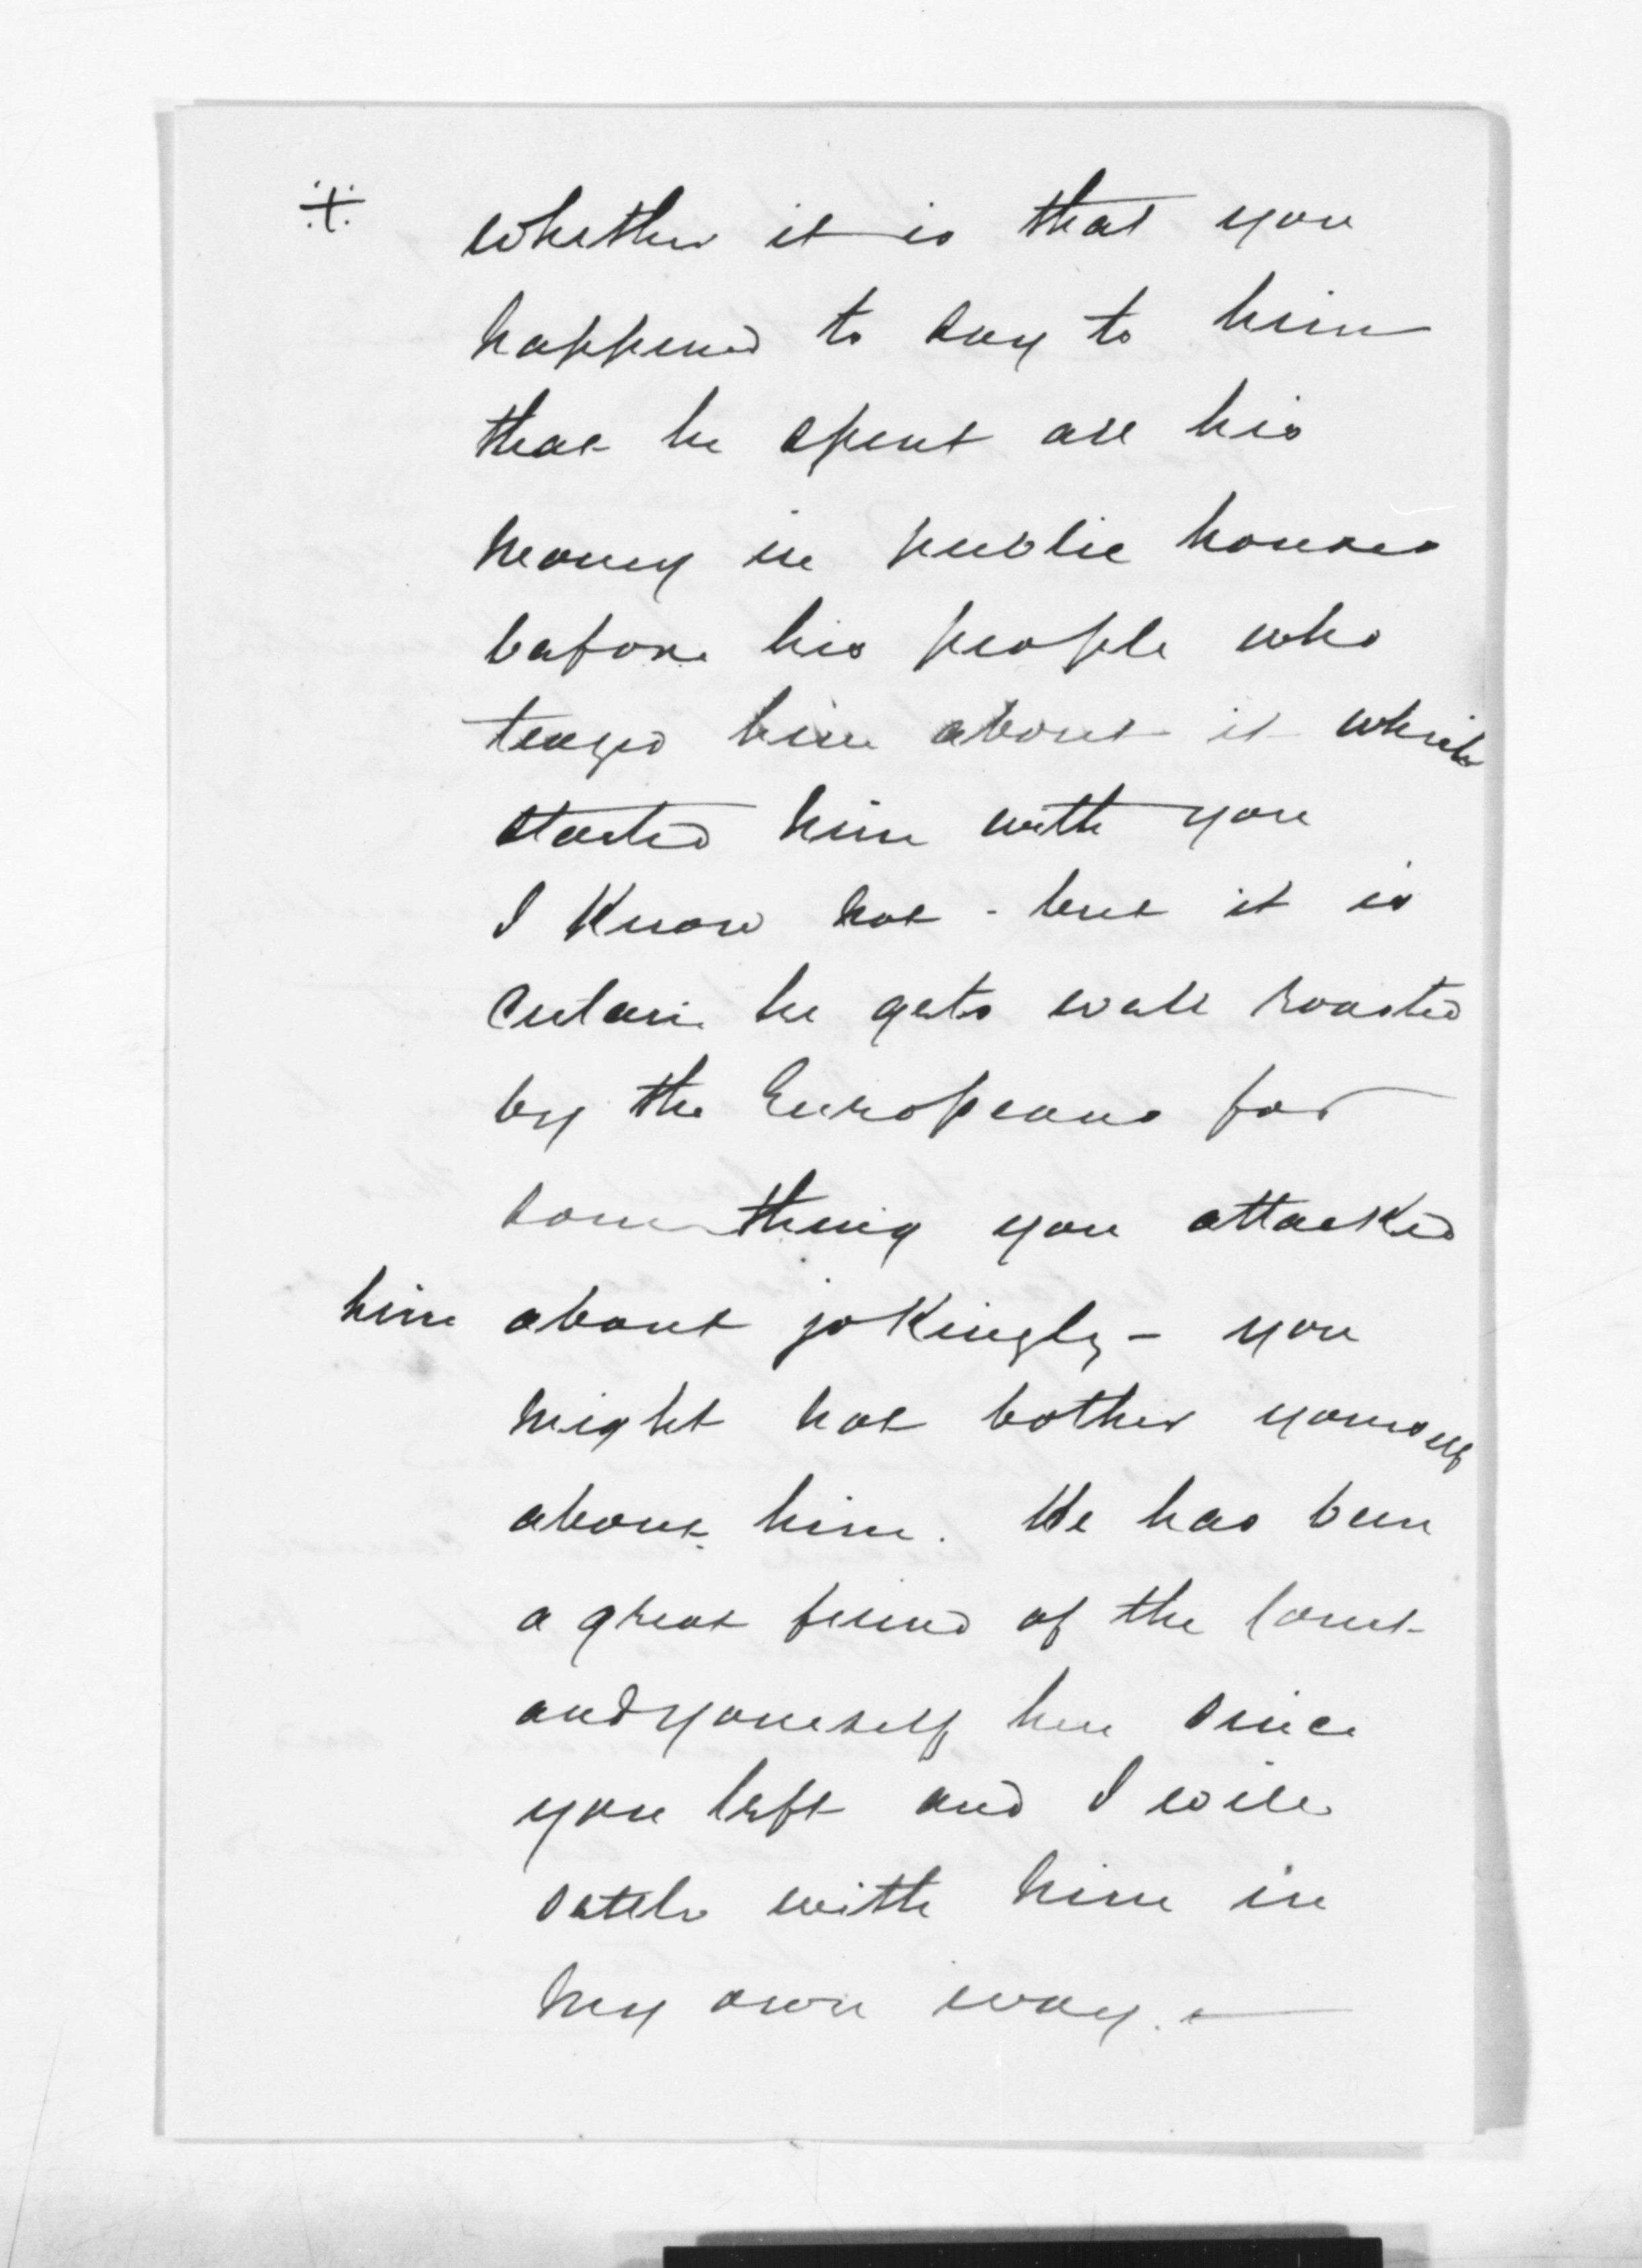 whether it is that you
happened to say to him
that he spent all his
money in public houses
before his people who
teazed him about it which
started him with you
I know not - but it is
certain he gets well roasted
by the Europeans for
something you attacked
him about jokingly - you
might not bother yourself
about him. He has been
a great friend of the Court
and yourself here since
you left and I will
settle with him in
my own way. -